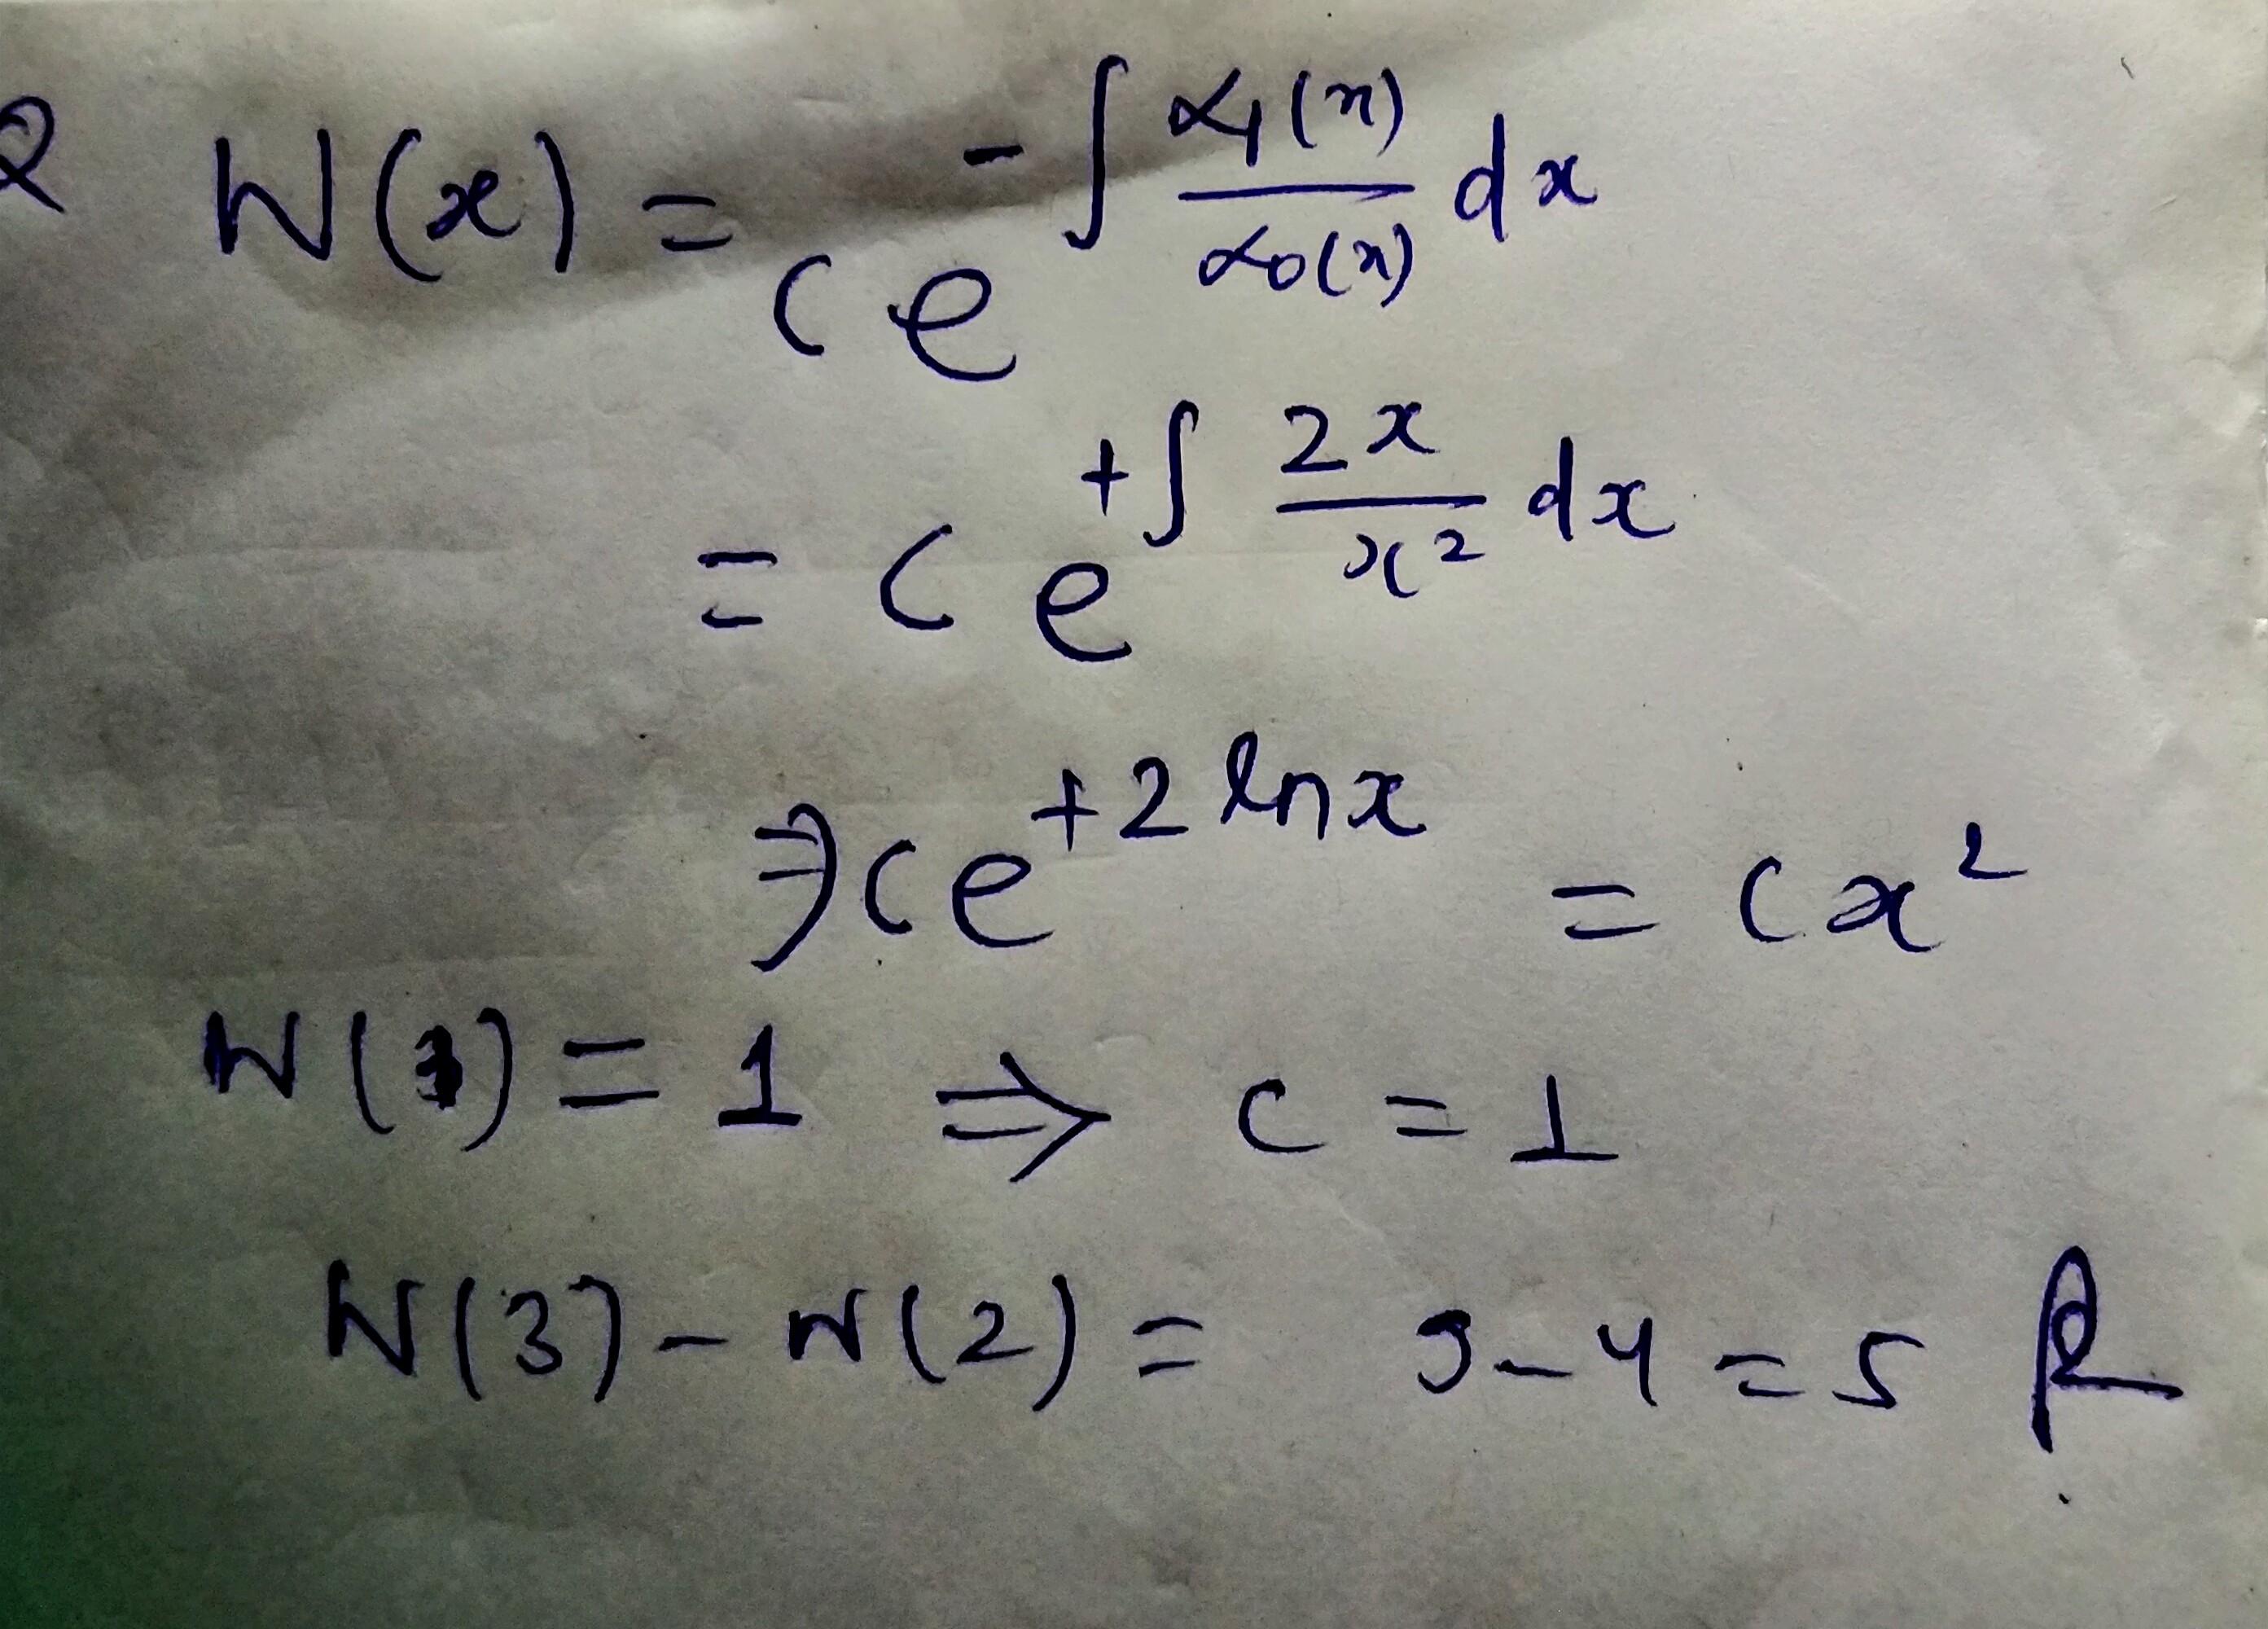 W(x) = c e^{-∫ \frac{α_1(x)}{α_0(x)} dx}
= c e^{+∫ \frac{2x}{x^2} dx}
⇒ c e^{+2 ln x} = c x^2
W(1) = 1 ⇒ c = 1
W(3) - W(2) = 9 - 4 = 5